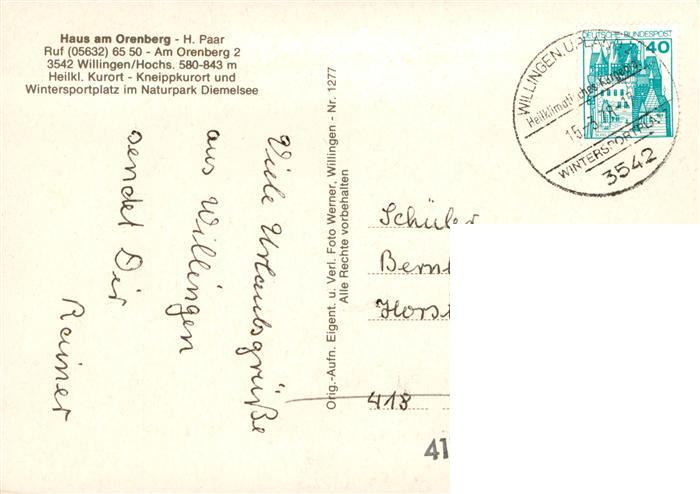 Haus am Orenberg - H. Paar
Ruf (05632) 65 50 - Am Orenberg 2
3542 Willingen/Hochs. 580-843 m
Heilkl. Kurort - Kneippkurort und
Wintersportplatz im Naturpark Diemelsee
Viele Urlaubsgrüße
aus Willingen
sendet Dir
Rainer
Orig.-Aufn. Eigent. u. Verl. Foto Werner, Willingen - Nr. 1277
Alle Rechte vorbehalten
DEUTSCHE BUNDESPOST
40
WILLINGEN
Heilklimatisches
WINTERSPORTPLATZ
3542
Schüler
Bern
Horst
418
41